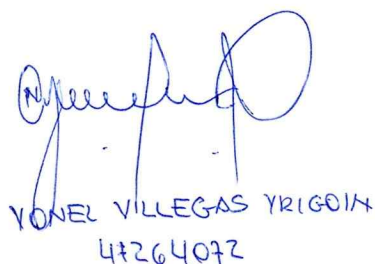 YONEL VILLEGAS YRIGOIN
47264072